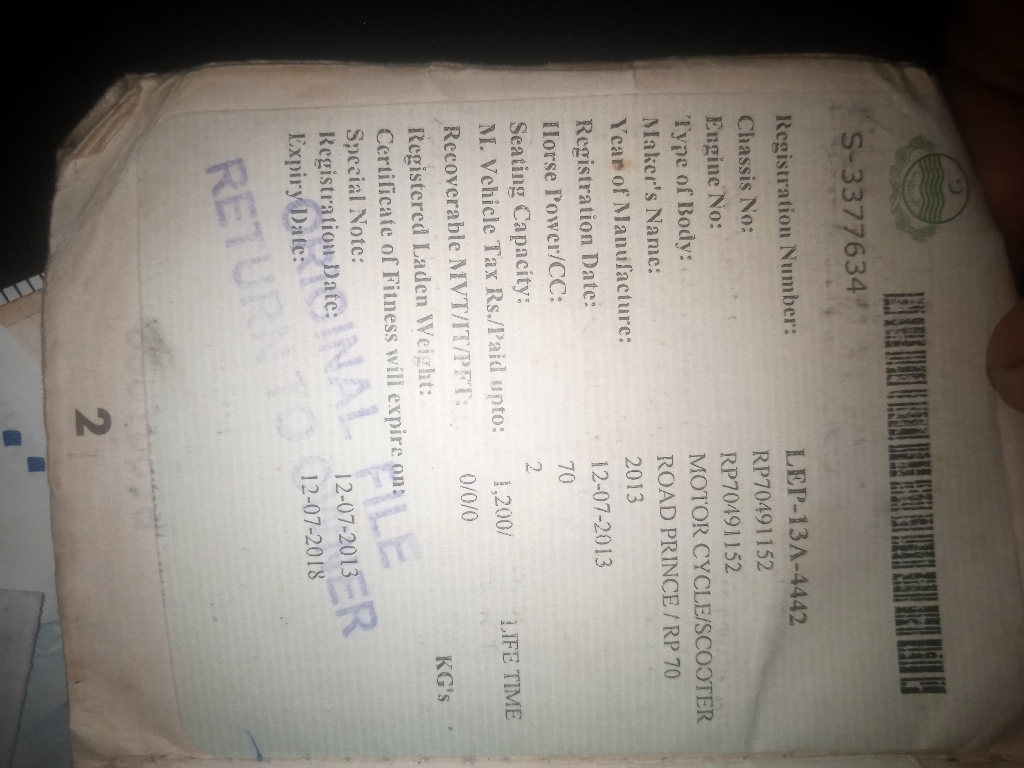 S-3377634
Registration Number: LEP-13A-4442
Chassis No: RP70491152
Engine No: RP70491152
Type of Body: MOTOR CYCLE/SCOOTER
Maker's Name: ROAD PRINCE / RP 70
Year of Manufacture: 2013
Registration Date: 12-07-2013
Horse Power/CC: 70
Seating Capacity: 2
M. Vehicle Tax Rs./Paid upto: 1,200/ LIFE TIME
Recoverable MVT/IT/PFT: 0/0/0
Registered Laden Weight: KG's
Certificate of Fitness will expire on:
Special Note:
Registration Date: 12-07-2013
Expiry Date: 12-07-2018
ORIGINAL FILE
RETURN TO OWNER
2